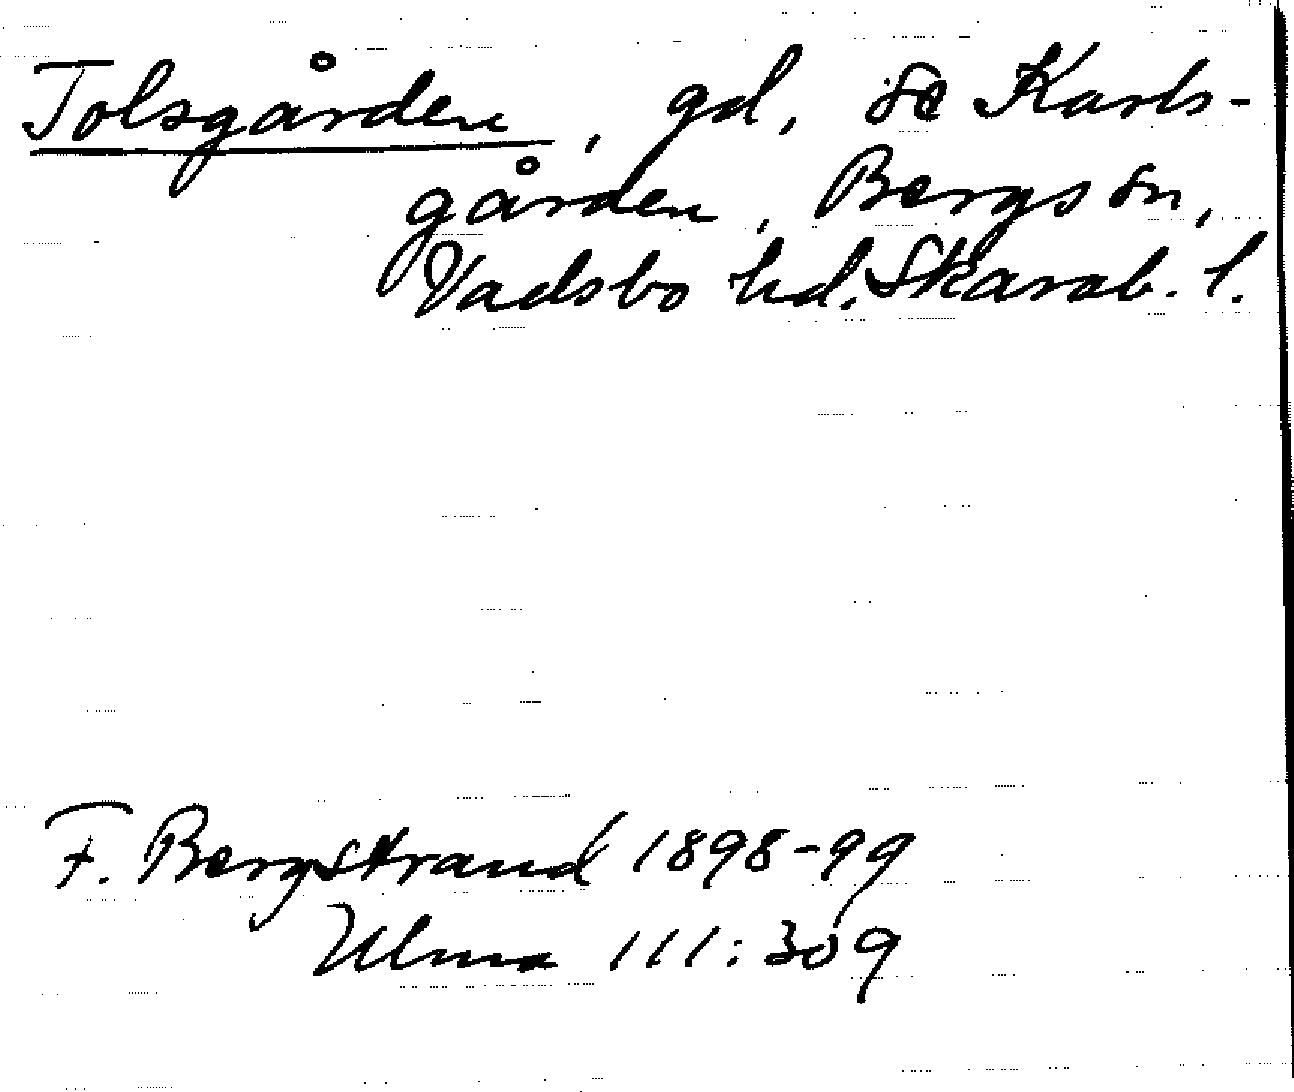 Tolsgården, gd, se Karls-
gården, Bergs sn,
Vadsbo hd. Skarab. l.
F. Bergstrand 1898-99
Ulma 111:309